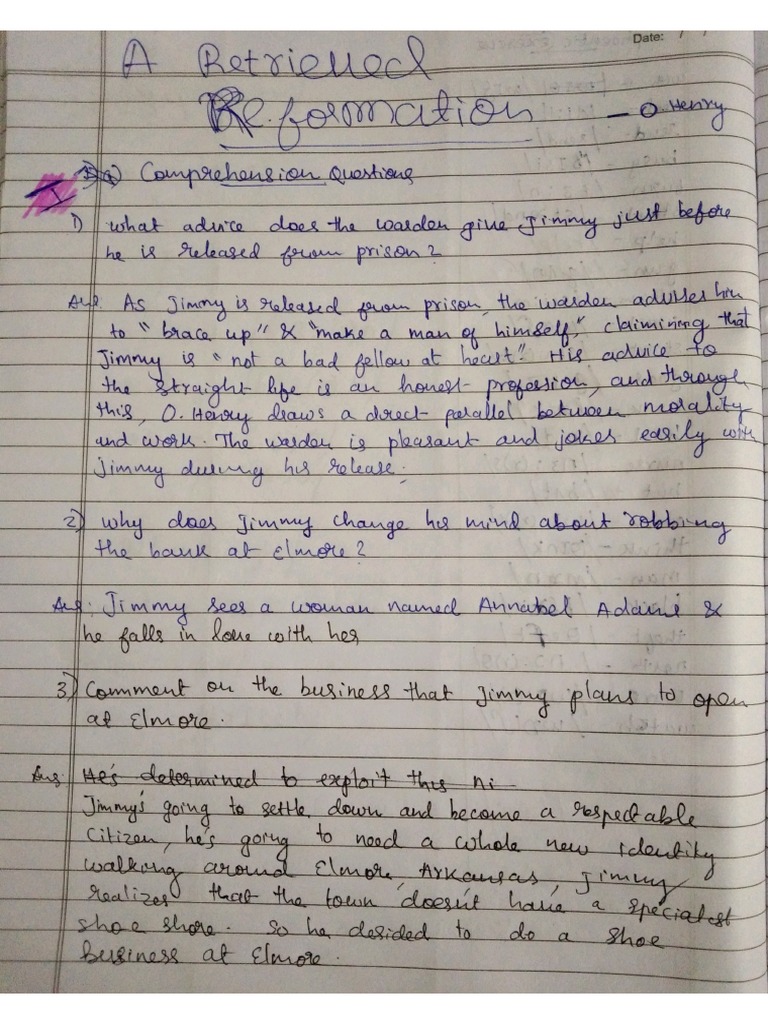 Date: / /
A Retrieved
Reformation - O. Henry
I Comprehension Questions
1) what advice does the warden give Jimmy just before
he is released from prison?
Ans: As Jimmy is released from prison, the warden advises him
to "brace up" & "make a man of himself," claimining that
Jimmy is "not a bad fellow at heart". His advice to
the straight life is an honest profession, and through
this, O. Henry draws a direct parallel between morality
and work. The warden is pleasant and jokes easily with
Jimmy during his release.
2) why does Jimmy change his mind about robbing
the bank at Elmore?
Ans: Jimmy sees a woman named Annabel Adams &
he falls in love with her
3) Comment on the business that Jimmy plans to open
at Elmore.
Ans: He's determined to exploit this ni
Jimmy's going to settle down and become a respectable
Citizen, he's going to need a whole new identity
walking around Elmore, Arkansas, Jimmy
realizes that the town doesn't have a specialest
shoe shore. So he desided to do a shoe
business at Elmore.